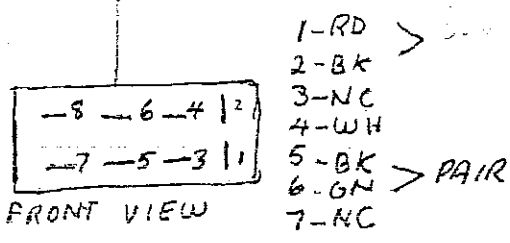 —8 —6 —4 | 2
—7 —5 —3 | 1
FRONT VIEW
1-RD >
2-BK
3-NC
4-WH
5-BK
6-GN > PAIR
7-NC